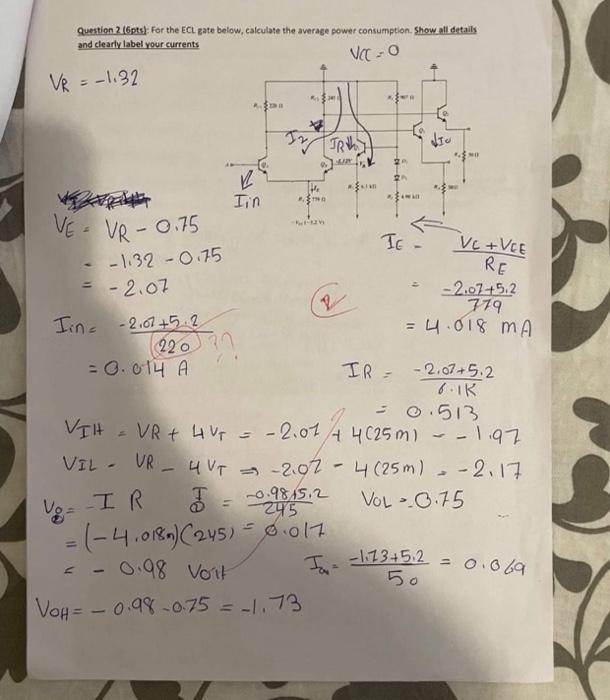 Question 2 (6pts): For the ECL gate below, calculate the average power consumption. Show all details
and clearly label your currents
VCC = 0
VR = -1.32
I2
IR
Iin
VE = VR - 0.75
= -1.32 - 0.75
= -2.07
IE = VC + VEE / RE
= -2.07+5.2 / 779
= 4.018 mA
2
Iin = -2.07+5.2 / 220 ??
= 0.014 A
IR = -2.07+5.2 / 6.1K
= 0.513
VIH = VR + 4VT = -2.07 + 4(25m) = -1.97
VIL = VR - 4VT => -2.07 - 4(25m) = -2.17
= -I R
= -0.98+5.2 / 245
VOL = -0.75
= (-4.018m)(245) = 0.017
= -0.98 Volt
= -1.73+5.2 / 50 = 0.069
VOH = -0.98 -0.75 = -1.73